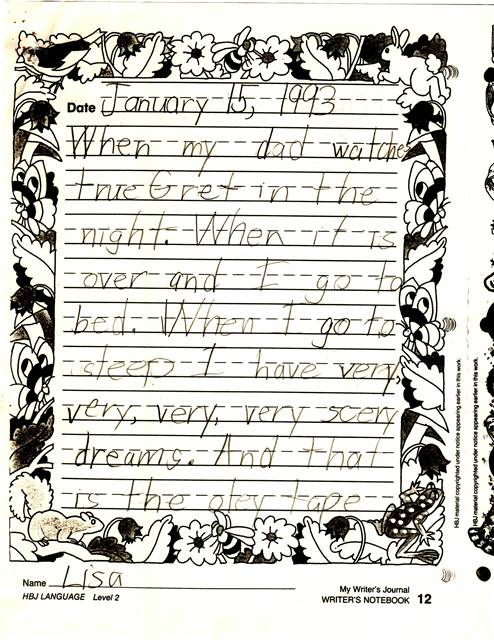 Date January 15, 1993
When my dad watche
true Gret in the
night. When it is
over and I go to
bed. When I go to
sleep I have very,
very, very, very scery
dreams. And that
is the oley tape
HBJ material copyrighted under notice appearing earlier in this work.
HBJ material copyrighted under notice appearing earlier in this work.
Name Lisa
HBJ LANGUAGE Level 2
My Writer's Journal
WRITER'S NOTEBOOK 12